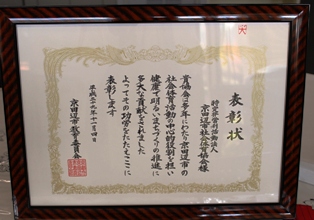 表彰状
特定非営利活動法人
京田辺市社会体育協会様
貴協会は多年にわたり京田辺市の
社会体育活動の中心的役割を担い
健康で明るいまちづくりの推進に
多大な貢献をされました
よってその功労をたたえここに
表彰します
平成二十九年十一月四日
京田辺市教育委員会